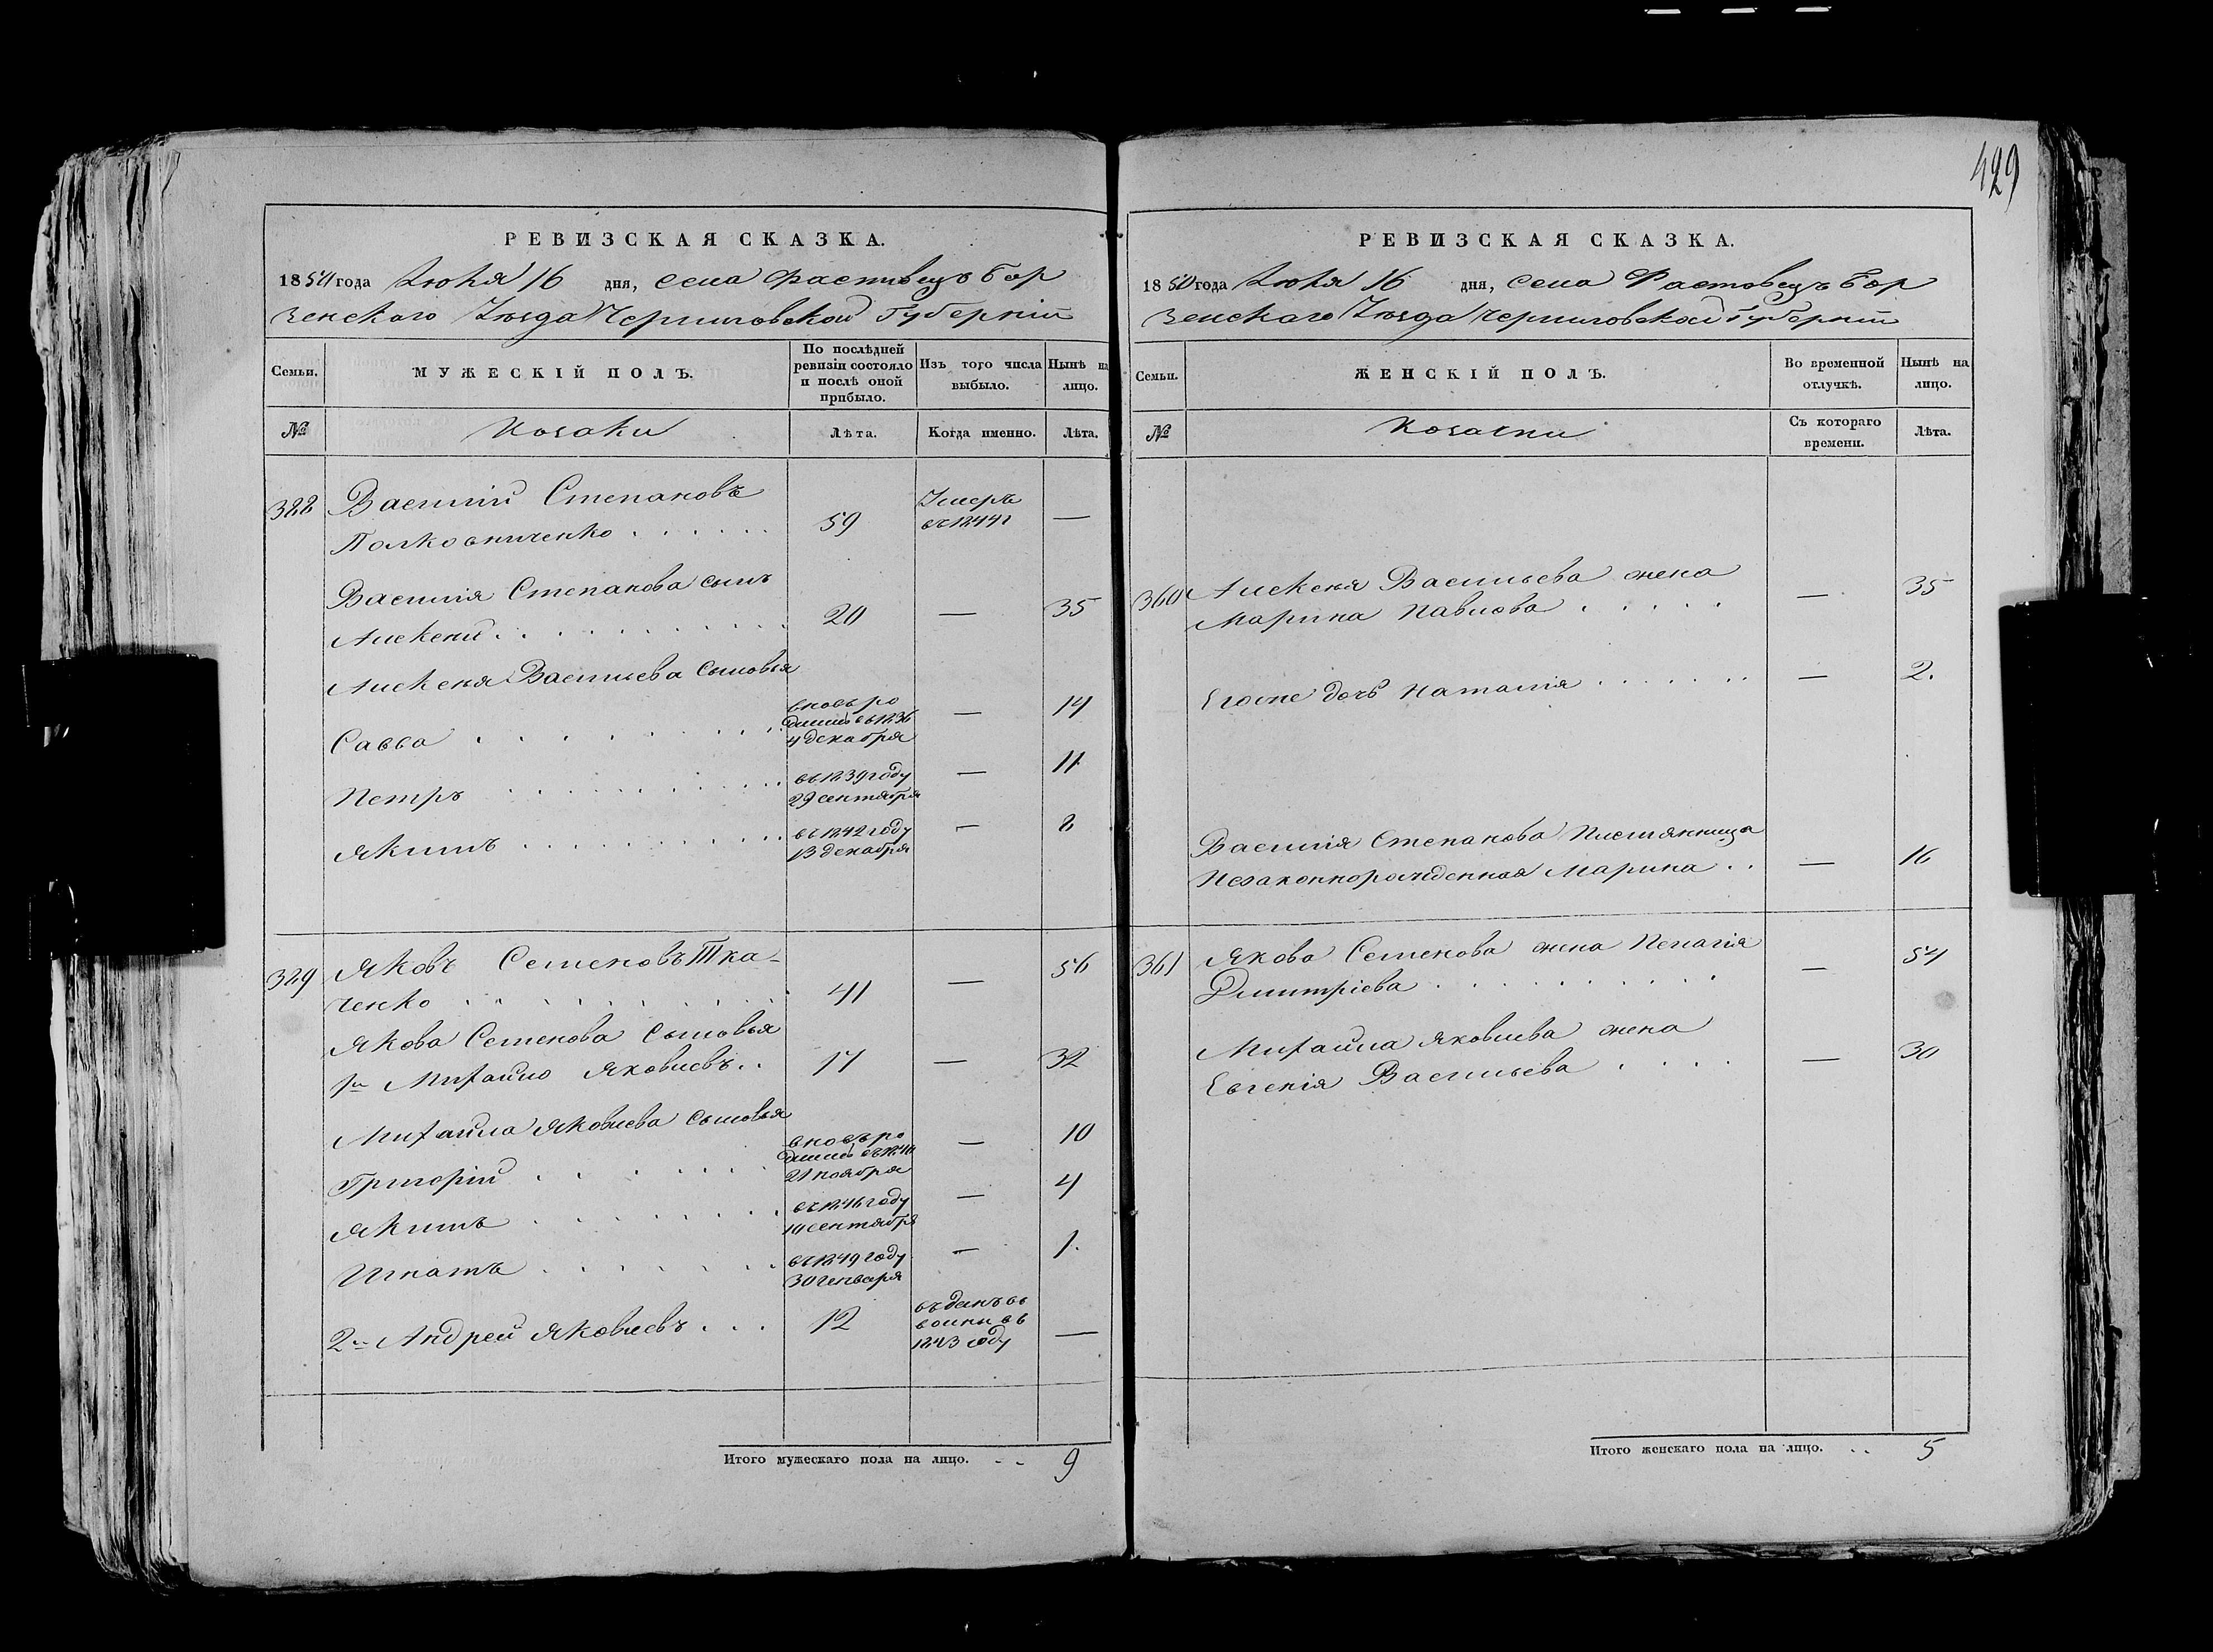 429
РЕВИЗСКАЯ СКАЗКА.
1850 года Іюня 16 дня, села Фастовецъ Бор
зенского Уезда Черниговской Губерніи
Семьи. МУЖЕСКІЙ ПОЛЪ. По послѣдней ревизіи состояло и послѣ оной прибыло. Изъ того числа выбыло. Нынѣ на лицо.
№ Козаки Лѣта. Когда именно. Лѣта.
388 Василій Степановъ
Полковниченко 59 Умеръ въ 1844 г —
Василія Степанова сынъ
Алексей 20 — 35
Алексея Васильева сыновья
Савва вновь ро дился въ 1836 4 декабря — 14
Петръ въ 1839 году 29 сентября — 11
Якимъ въ 1842 году 13 декабря — 8
389 Яковъ Семеновъ Тка-
ченко 41 — 56
Якова Семенова сыновья
1й Михайло Яковлевъ 17 — 32
Михайла Яковлева сыновья
Григорій вновь ро дился въ 1840 21 ноября — 10
Якимъ въ 1846 году сентября — 4
Игнатъ въ 1849 году 30 генваря — 1
2й Андрей Яковлевъ 12 1843 году —
Итого мужескаго пола на лицо. 9
РЕВИЗСКАЯ СКАЗКА.
1850 года Іюня 16 дня, села Фастовецъ Бор
зенскаго Уезда Черниговской Губерніи
Семьи. ЖЕНСКІЙ ПОЛЪ. Во временной отлучкѣ. Нынѣ на лицо.
№ Козачки Съ котораго времени. Лѣта.
360 Алексея Васильева жена
Марина Павлова — 35
Егоже дочь Наталія — 2.
Василія Степанова племянница
Незаконнорожденная Марина — 16
361 Якова Семенова жена Пелагія
Дмитріева — 54
Михайла Яковлева жена
Евгенія Васильева — 30
Итого женскаго пола на лицо. 5